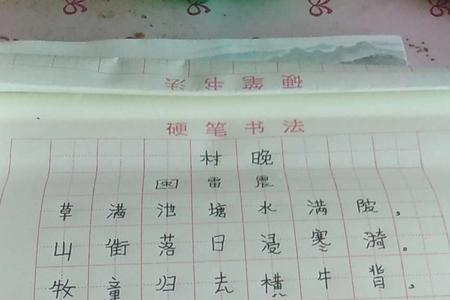 硬笔书法
硬笔书法
村晚
雷震
草满池塘水满陂，
山衔落日浸寒漪。
牧童归去横牛背，